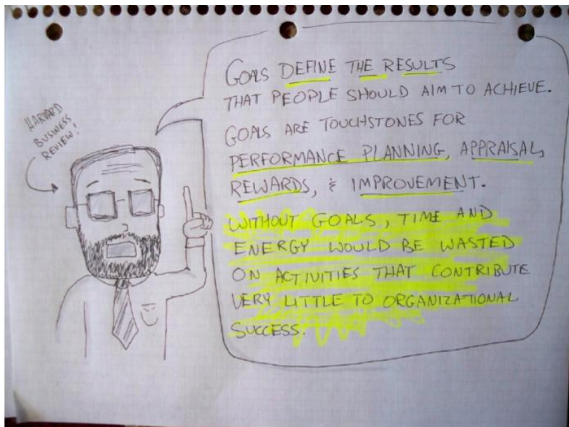 HARVARD
BUSINESS
REVIEW!
GOALS DEFINE THE RESULTS
THAT PEOPLE SHOULD AIM TO ACHIEVE.
GOALS ARE TOUCHSTONES FOR
PERFORMANCE PLANNING, APPRAISAL,
REWARDS, & IMPROVEMENT.
WITHOUT GOALS, TIME AND
ENERGY WOULD BE WASTED
ON ACTIVITIES THAT CONTRIBUTE
VERY LITTLE TO ORGANIZATIONAL
SUCCESS.